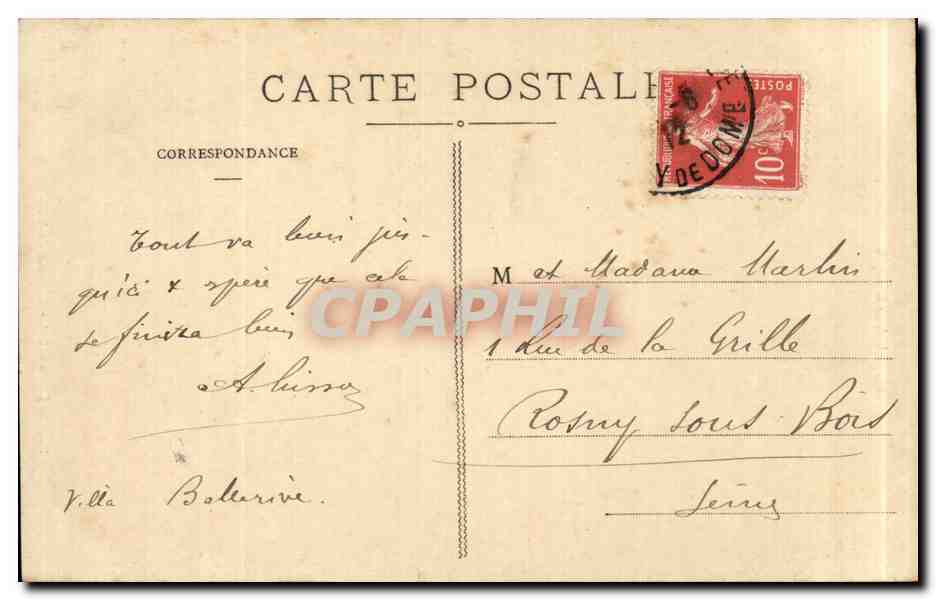 CARTE POSTALE
CORRESPONDANCE
Tout va bien jus-
qu'ici & espère que cela
se finira bien
A.
Villa Bellerive.
M et Madame Martin
1 Rue de la Grille
Rosny sous Bois
Seine
REPUBLIQUE FRANÇAISE
POSTES
10c
12
Y DE DOME
CPAPHIL